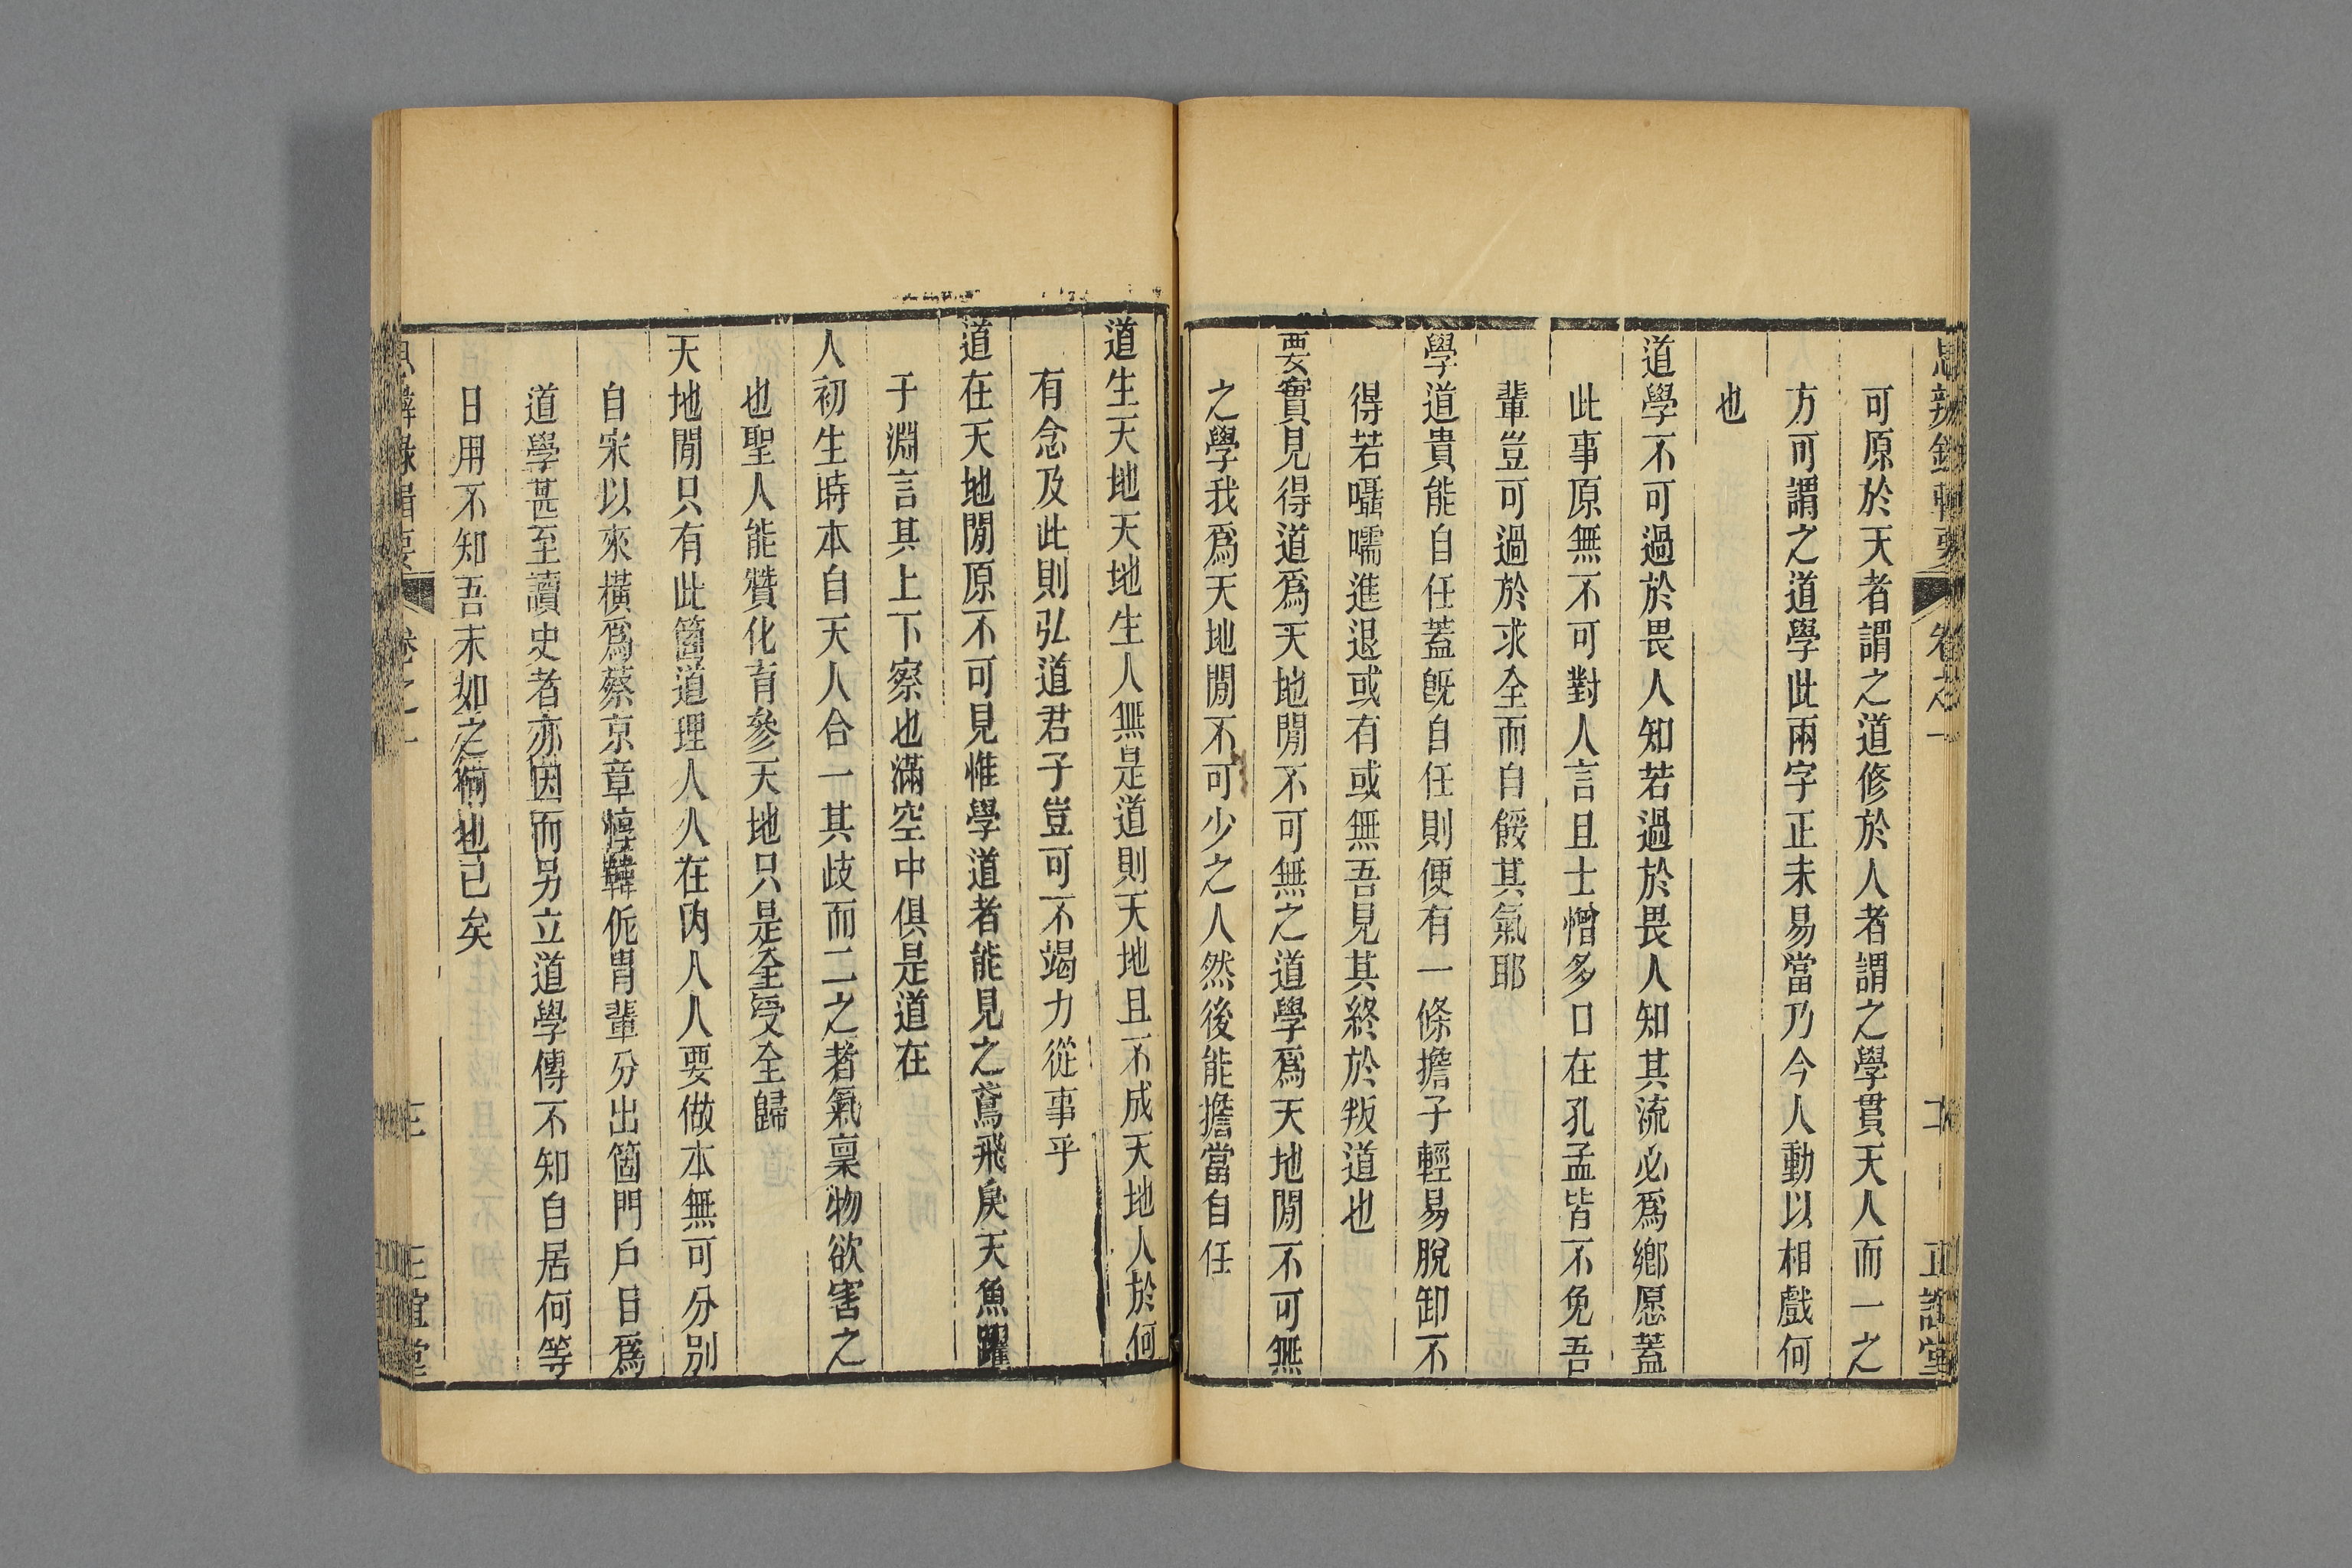 思辨錄輯要 卷之一 二 正誼堂
可原於天者謂之道修於人者謂之學貫天人而一之
方可謂之道學此兩字正未易當乃今人動以相戲何
也
道學不可過於畏人知若過於畏人知其流必爲鄉愿蓋
此事原無不可對人言且士憎多口在孔孟皆不免吾
輩豈可過於求全而自餒其氣耶
學道貴能自任蓋旣自任則便有一條擔子輕易脫卸不
得若囁嚅進退或有或無吾見其終於叛道也
要實見得道爲天地閒不可無之道學爲天地閒不可無
之學我爲天地閒不可少之人然後能擔當自任
道生天地天地生人無是道則天地且不成天地人於何
有念及此則弘道君子豈可不竭力從事乎
道在天地閒原不可見惟學道者能見之鳶飛戾天魚躍
于淵言其上下察也滿空中俱是道在
人初生時本自天人合一其歧而二之者氣稟物欲害之
也聖人能贊化育參天地只是全受全歸
天地閒只有此箇道理人人在內人人要做本無可分別
自宋以來橫爲蔡京章惇韓侂胄輩分出箇門戶目爲
道學甚至讀史者亦因而另立道學傳不知自居何等
日用不知吾末如之何也已矣
思辨錄輯要 卷之一 三 正誼堂